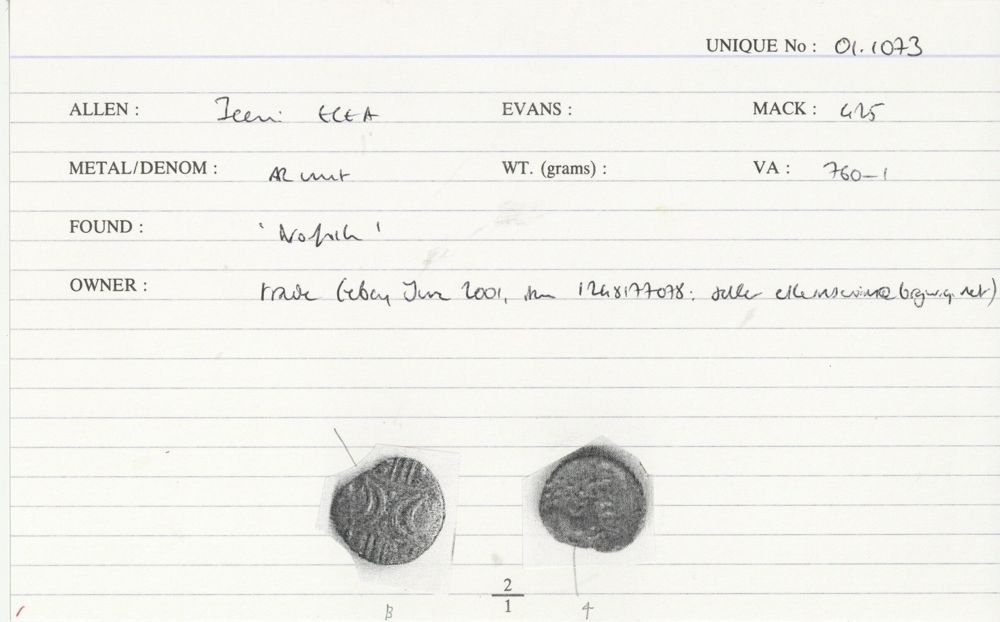 UNIQUE No : 01.1073
ALLEN : Iceni ECEA EVANS : MACK : 425
METAL/DENOM : AR unit WT. (grams) : VA : 760-1
FOUND : 'Norfolk'
OWNER : trade (ebay June 2001, item 1248177078; seller
2
1
B 4